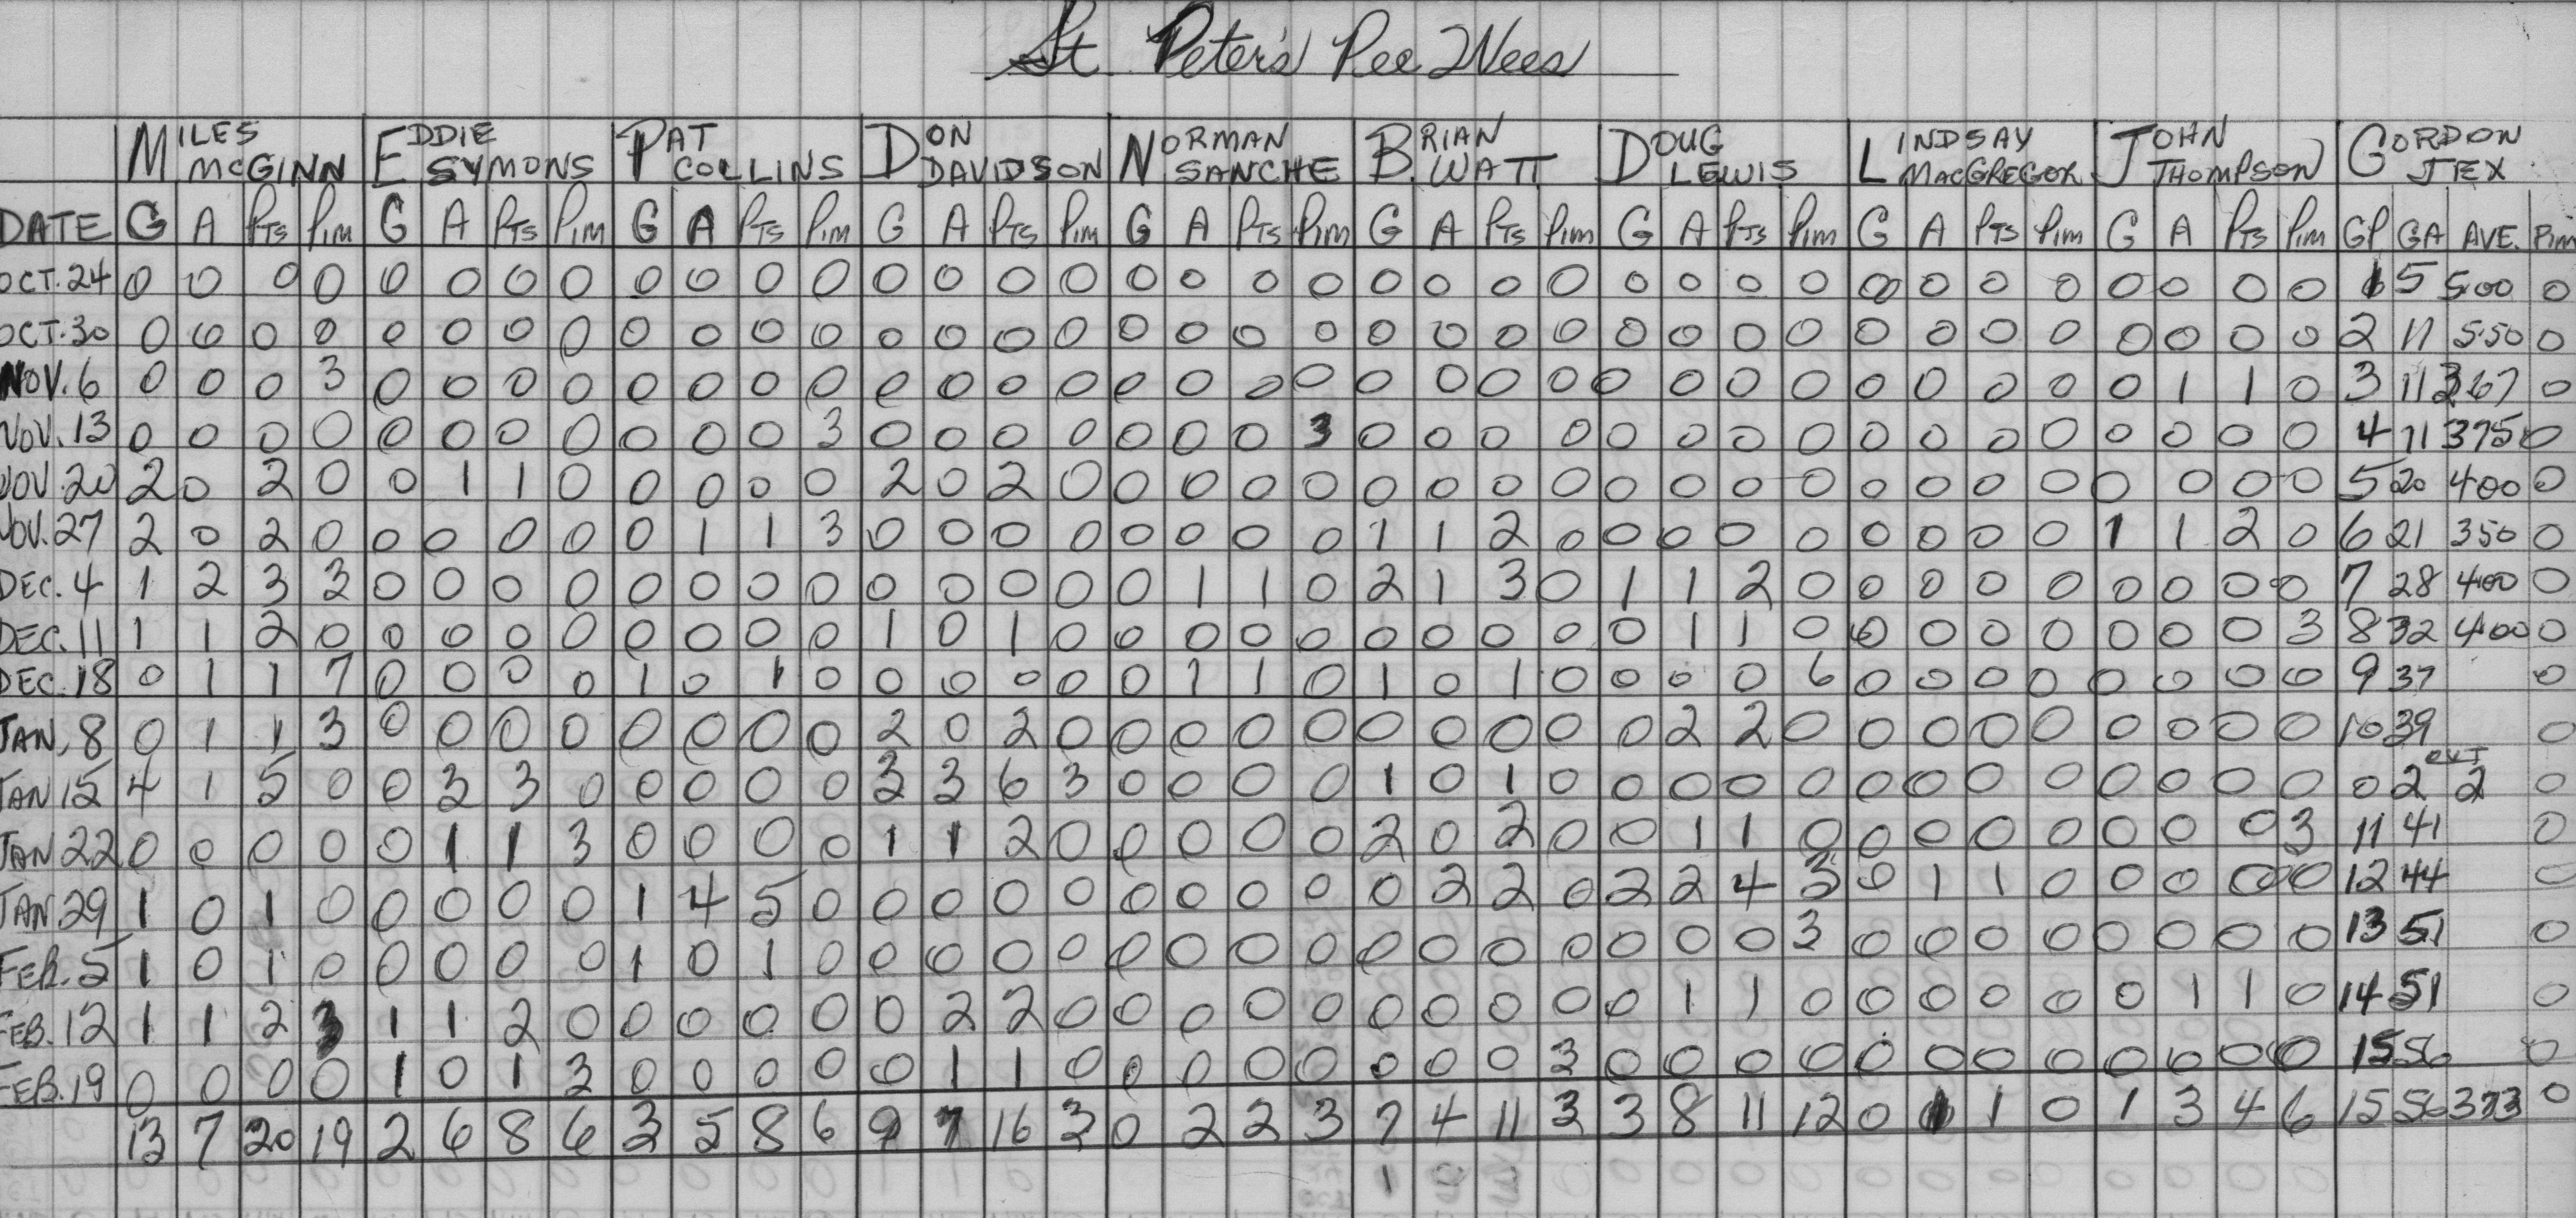 St Peter's Pee Wees
MILES McGINN EDDIE SYMONS PAT COLLINS DON DAVIDSON NORMAN SANCHE BRIAN WATT DOUG LEWIS LINDSAY MacGREGOR JOHN THOMPSON GORDON JEX
DATE G A PTS Pim G A PTS Pim G A PTS Pim G A PTS Pim G A PTS Pim G A PTS Pim G A PTS Pim G A PTS Pim G A PTS Pim GP GA AVE. Pim
OCT. 24 0 0 0 0 0 0 0 0 0 0 0 0 0 0 0 0 0 0 0 0 0 0 0 0 0 0 0 0 0 0 0 0 0 0 0 0 1 5 5.00 0
OCT. 30 0 0 0 0 0 0 0 0 0 0 0 0 0 0 0 0 0 0 0 0 0 0 0 0 0 0 0 0 0 0 0 0 0 0 0 0 2 11 5.50 0
NOV. 6 0 0 0 3 0 0 0 0 0 0 0 0 0 0 0 0 0 0 0 0 0 0 0 0 0 0 0 0 0 0 0 0 0 1 1 0 3 11 367 0
NOV. 13 0 0 0 0 0 0 0 0 0 0 0 3 0 0 0 0 0 0 0 3 0 0 0 0 0 0 0 0 0 0 0 0 0 0 0 0 4 11 375 0
NOV. 20 2 0 2 0 0 1 1 0 0 0 0 0 2 0 2 0 0 0 0 0 0 0 0 0 0 0 0 0 0 0 0 0 0 0 0 0 5 20 400 0
NOV. 27 2 0 2 0 0 0 0 0 0 1 1 3 0 0 0 0 0 0 0 0 1 1 2 0 0 0 0 0 0 0 0 0 1 1 2 0 6 21 350 0
DEC. 4 1 2 3 3 0 0 0 0 0 0 0 0 0 0 0 0 0 1 1 0 2 1 3 0 1 1 2 0 0 0 0 0 0 0 0 0 7 28 400 0
DEC. 11 1 1 2 0 0 0 0 0 0 0 0 0 1 0 1 0 0 0 0 0 0 0 0 0 0 1 1 0 0 0 0 0 0 0 0 3 8 32 400 0
DEC. 18 0 1 1 7 0 0 0 0 1 0 1 0 0 0 0 0 0 1 1 0 1 0 1 0 0 0 0 6 0 0 0 0 0 0 0 0 9 37 0
JAN. 8 0 1 1 3 0 0 0 0 0 0 0 0 2 0 2 0 0 0 0 0 0 0 0 0 0 2 2 0 0 0 0 0 0 0 0 0 10 39 0
JAN 15 4 1 5 0 0 3 3 0 0 0 0 0 3 3 6 3 0 0 0 0 1 0 1 0 0 0 0 0 0 0 0 0 0 0 0 0 0 2 OUT 2 0
JAN 22 0 0 0 0 0 1 1 3 0 0 0 0 1 1 2 0 0 0 0 0 2 0 2 0 0 1 1 0 0 0 0 0 0 0 0 3 11 41 0
JAN. 29 1 0 1 0 0 0 0 0 1 4 5 0 0 0 0 0 0 0 0 0 0 2 2 0 2 2 4 3 0 1 1 0 0 0 0 0 12 44 0
FEB. 5 1 0 1 0 0 0 0 0 1 0 1 0 0 0 0 0 0 0 0 0 0 0 0 0 0 0 0 3 0 0 0 0 0 0 0 0 13 51 0
FEB. 12 1 1 2 3 1 1 2 0 0 0 0 0 0 2 2 0 0 0 0 0 0 0 0 0 0 1 1 0 0 0 0 0 0 1 1 0 14 51 0
FEB. 19 0 0 0 0 1 0 1 3 0 0 0 0 0 1 1 0 0 0 0 0 0 0 0 3 0 0 0 0 0 0 0 0 0 0 0 0 15 56 0
13 7 20 19 2 6 8 6 3 5 8 6 9 7 16 3 0 2 2 3 7 4 11 3 3 8 11 12 0 1 1 0 1 3 4 6 15 56 373 0